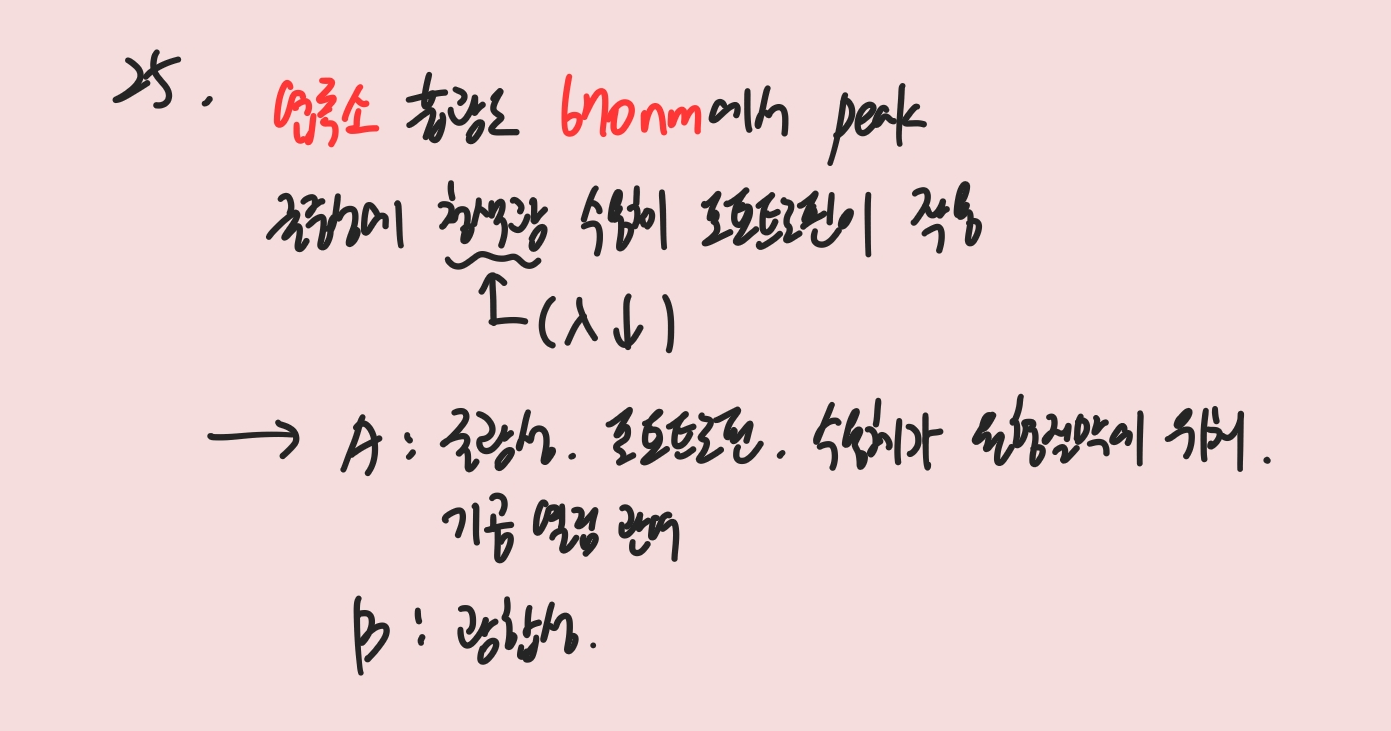 25. 엽록소 흡광도 670nm에서 peak
굴광성에 청색광 수용체 포토트로핀이 작용
(λ↓)
→ A : 굴광성. 포토트로핀. 수용체가 원형질막에 위치.
기공 열림 관여
B : 광합성.